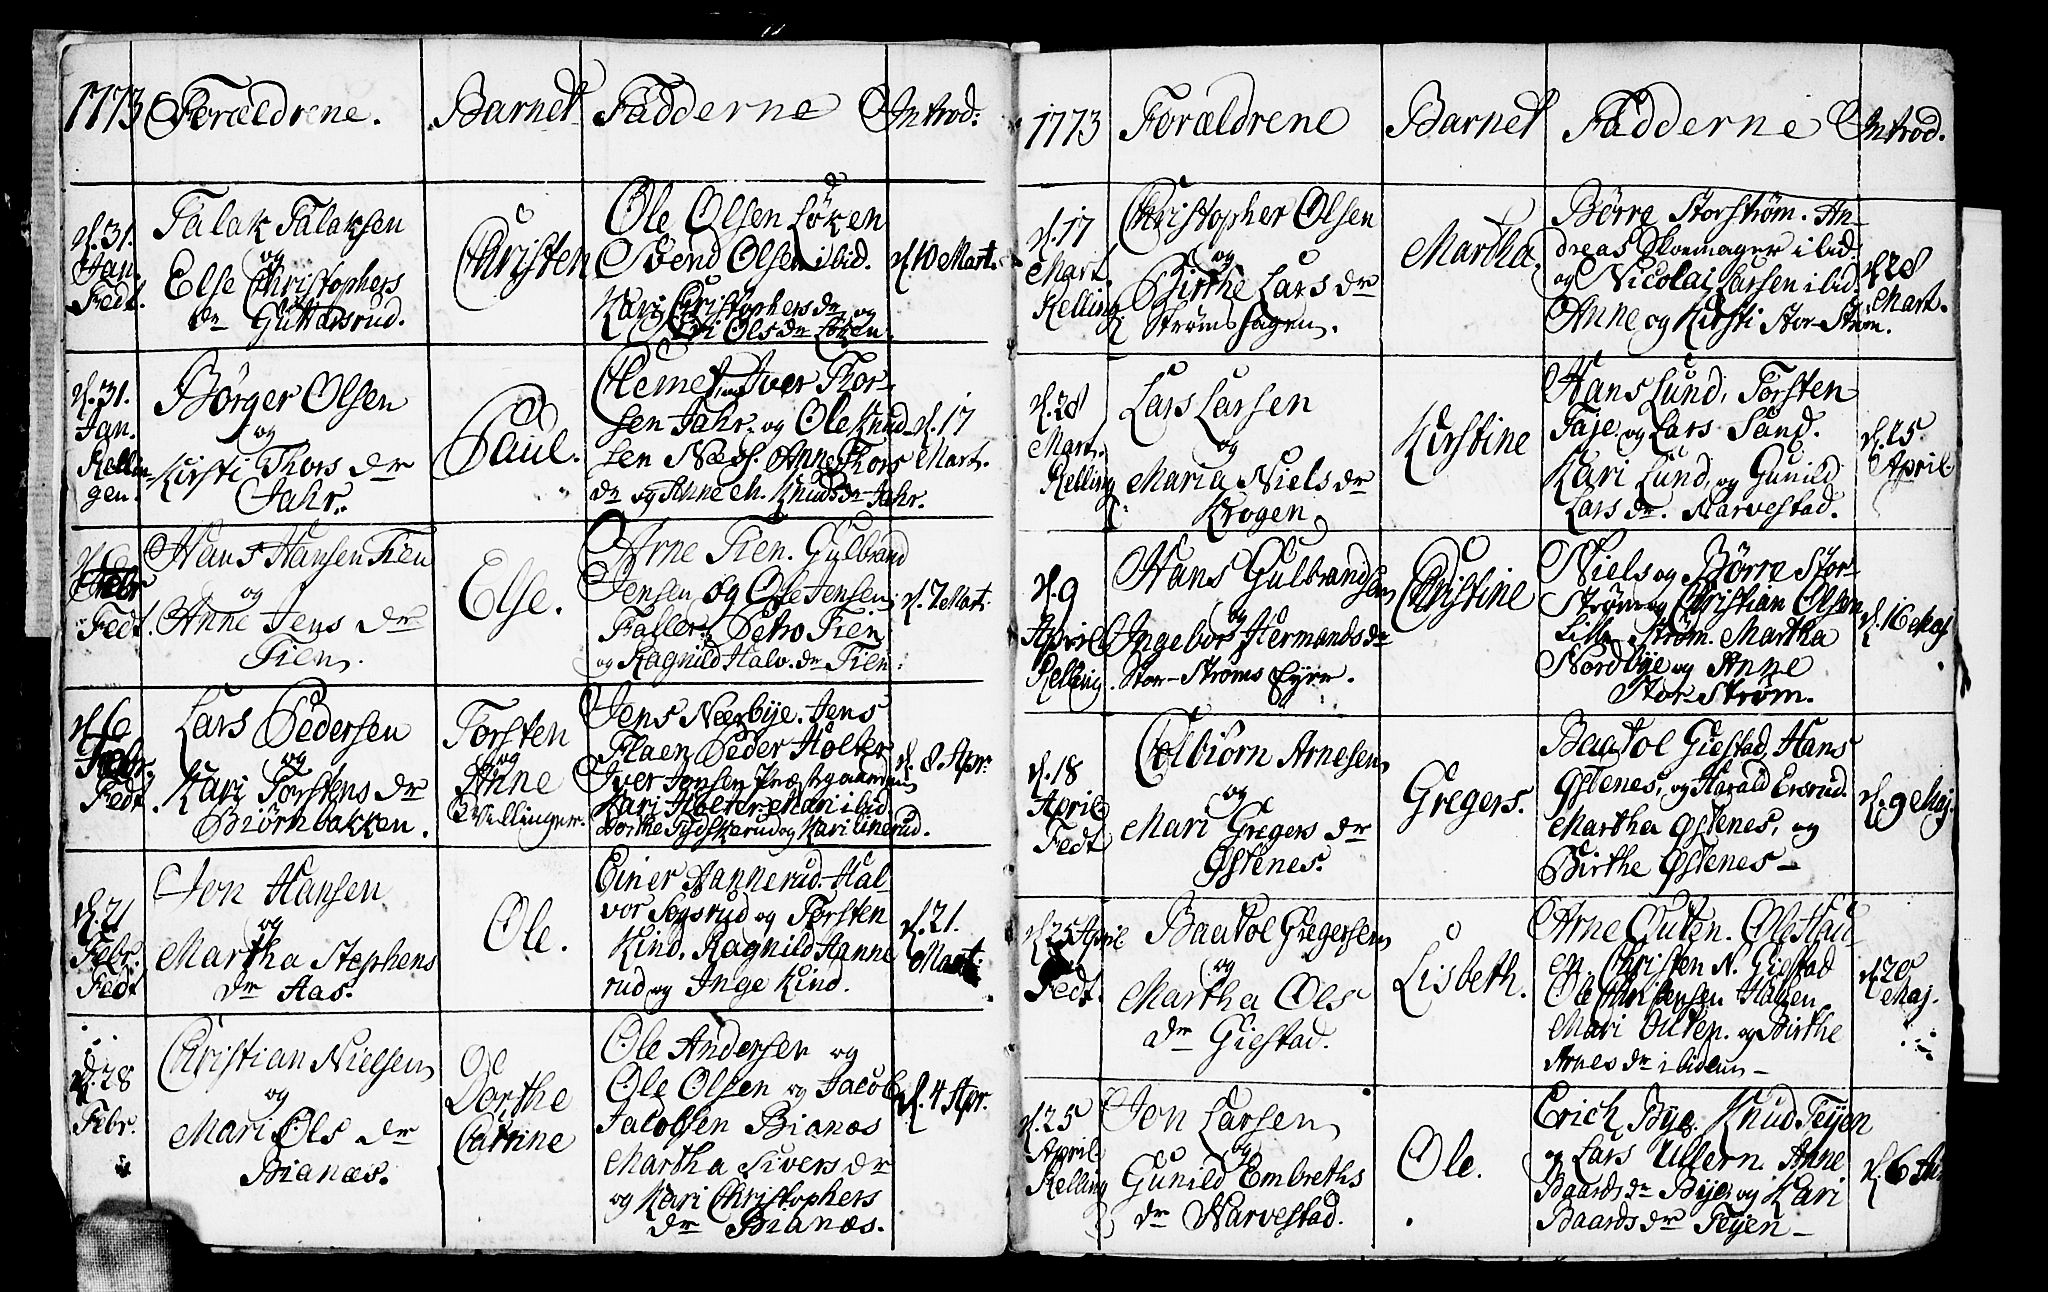 1773 Forældrene. Barnet Fadderne Introd:
d. 31.
Jan.
Fedt.
Falak Falaksen
og
Else Christophers
dr Guttersrud.
Christen
Ole Olsen Løken
Svend Olsen ibid.
Kari Christophersdr og
Olsdr Løken
d. 10 Mart.
d. 31.
Jan.
Kellin-
gen.
Børger Olsen
og
Kirsti Thors dr
Jahr.
Paul.
Clemet, Iver Thor-
sen Jahr. og Ole Knud-
sen Neds. Anne Thors
dr og Anne M. Knudsdr Jahr.
d. 17
Mart.
d. 6
Febr
Fedt.
Hans Hansen Fien
og
Anne Jens dr
Fien.
Else.
Arne Fien. Gulbrand
Jensen og Ole Jensen
Faller. Fien
og Ragnild Halv. dr Fien.
d. 7 Mart.
d. 6
Febr.
Fedt
Lars Pedersen
og
Kari Torstens dr
Biørnbakken.
Torsten
og
Anne
Tvillinger.
Jens Nærbÿe. Jens
Flaen Peder Holter
Iver Jonsen Præstegaarden
Kari Holter Mari ibid
Dorthe Tÿdskerud og Kari Linerud.
d. 8. Apr.
d. 21
Febr.
Fedt
Jon Hansen
og
Martha Stephens
dr Aas.
Ole.
Einer Hannerud. Hal-
vor Sogsrud og Torsten
Kind. Ragnild Hanne
rud og Inge Kind.
d. 21.
Mart.
d. 28
Febr.
Christian Nielsen
og
Mari Ols dr
Bianæs.
Dorthe
Catrine
Ole Andersen og
Ole Olsen og Jacob
Jacobsen Bianæs
Martha Sivers dr
og Kari Christophers
dr Bianæs.
d. 4 Apr.
1773 Forældrene Barnet Fadderne Introd.
d. 17
Mart.
Kelling
Christopher Olsen
og
Birthe Lars dr
Strømshagen.
Martha.
Børre Storstrøm. An-
dreas Skoemager ibid.
og Nicolai Larsen ibid.
Anne og Kirsti Stor-Strøm.
d. 28
Mart.
d. 28
Mart.
Kelling
Lars Larsen
og
Maria Niels dr
Krogen
Kirstine
Hans Lund, Torsten
Faje, og Lars Sand.
Kari Lund, og Gunild
Lars dr. Narvestad.
d. 25.
April
d. 9
April
Kelling.
Hans Gulbrandsen
og
Ingebor Hermands dr
Stor-Strøms Eÿer.
Christine
Niels og Børre Stor-
Strøm og Christian Olsen
Lille Strøm. Martha
Nordbÿe og Anne
Stor Strøm.
d. 16 Maj
d. 18
April
Fedt
Colbiørn Arnesen
og
Mari Gregers dr
Østenes.
Gregers.
Baatol Giestad, Hans
Østenes, og Harald Ersrud.
Martha Østenes, og
Birthe Østenes
d. 9 Maj.
d. 25 April
Fedt.
Baatol Gregersen
og
Martha Ols
dr Giestad.
Lisbeth.
Arne Outen. Ole Hau-
en Christen N. Giestad
Ole Christensen Haugen
Mari Outen. og Birthe
Arnes dr ibidem
d. 20
Maj.
d. 25
April
Kelling
Jon Larsen
og
Gunild Embreths
dr Narvestad.
Ole.
Erich Bÿe. Knud Teÿen
og Lars Ullern. Anne
Baards dr Bÿe, og Kari
Baards dr Teÿen
d. 6